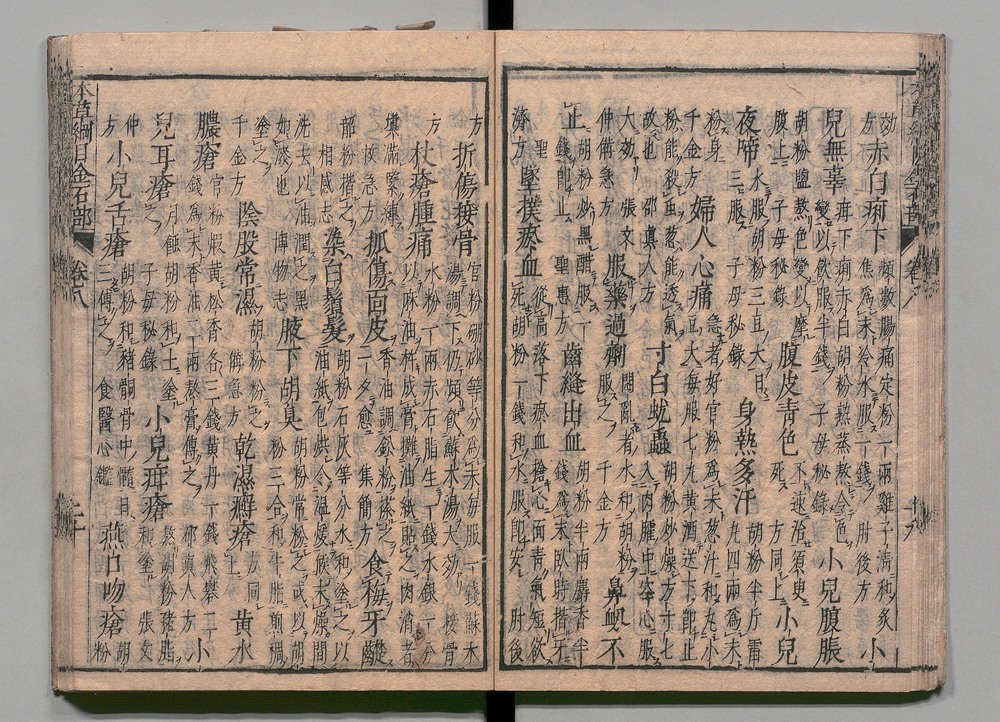 本草綱目金石部 卷八 十九
効方 赤白痢下 頻數腸痛定粉一兩雞子清和炙焦爲末冷水服一錢 肘後方 小
兒無辜 疳下痢赤白胡粉熟蒸熬令色變以飲服半錢 子母秘錄 小兒腹脹
胡粉鹽熬色變以摩腹上 子母秘錄 腹皮青色 不速治須臾死 方同上 小兒
夜啼 水服胡粉三豆大日三服 子母秘錄 身熱多汗 胡粉半斤雷丸四兩爲末
粉身 千金方 婦人心痛 急者好官粉爲末葱汁和丸小豆大每服七丸黃酒送下即止
粉能殺虫葱能透氣故也 邵眞人方 寸白蚘蟲 胡粉炒燥方寸七入肉臛中空心服
大効 張文仲備急方 服藥過劑 悶亂者水和胡粉服之 千金方 鼻衂不
止 胡粉炒黑醋服一錢即止 聖惠方 齒縫出血 胡粉半兩麝香半錢爲末臥時揩牙
聖濟方 墜撲瘀血 從高落下瘀血搶心面青氣短欲死胡粉一錢和水服即安 肘後
方 折傷接骨 官粉硼砂等分爲末每服一錢蘇木湯調下仍頻飲蘇木湯大効 接骨
方 杖瘡腫痛 水粉一兩赤石脂生一錢水銀一分以麻油杵成膏攤油紙貼之肉消者
塡滿緊縛 救急方 抓傷面皮 香油調鉛粉搽之一夕愈 集簡方 食梅牙齼
韶粉揩之 相感志 染白鬚髮 胡粉石灰等分水和塗之以油紙包烘令溫暖候未燥間
洗去以油潤之黑如漆也 博物志 腋下胡臭 胡粉常粉之或以胡粉三合和牛脂煎稠
塗之 千金方 陰股常濕 胡粉粉之 備急方 乾濕癬瘡 方同上 黃水
膿瘡 官粉煅黃松香各三錢黃丹一錢飛礬二錢爲末香油二兩熬膏傅之 邵眞人方 小
兒耳瘡 月蝕胡粉和土塗之 子母秘錄 小兒疳瘡 熬胡粉豬脂和塗 張文
仲方 小兒舌瘡 胡粉和豬䯊骨中髓日三傅之 食醫心鑑 燕口吻瘡 胡粉
本草綱目金石部 卷八 二十